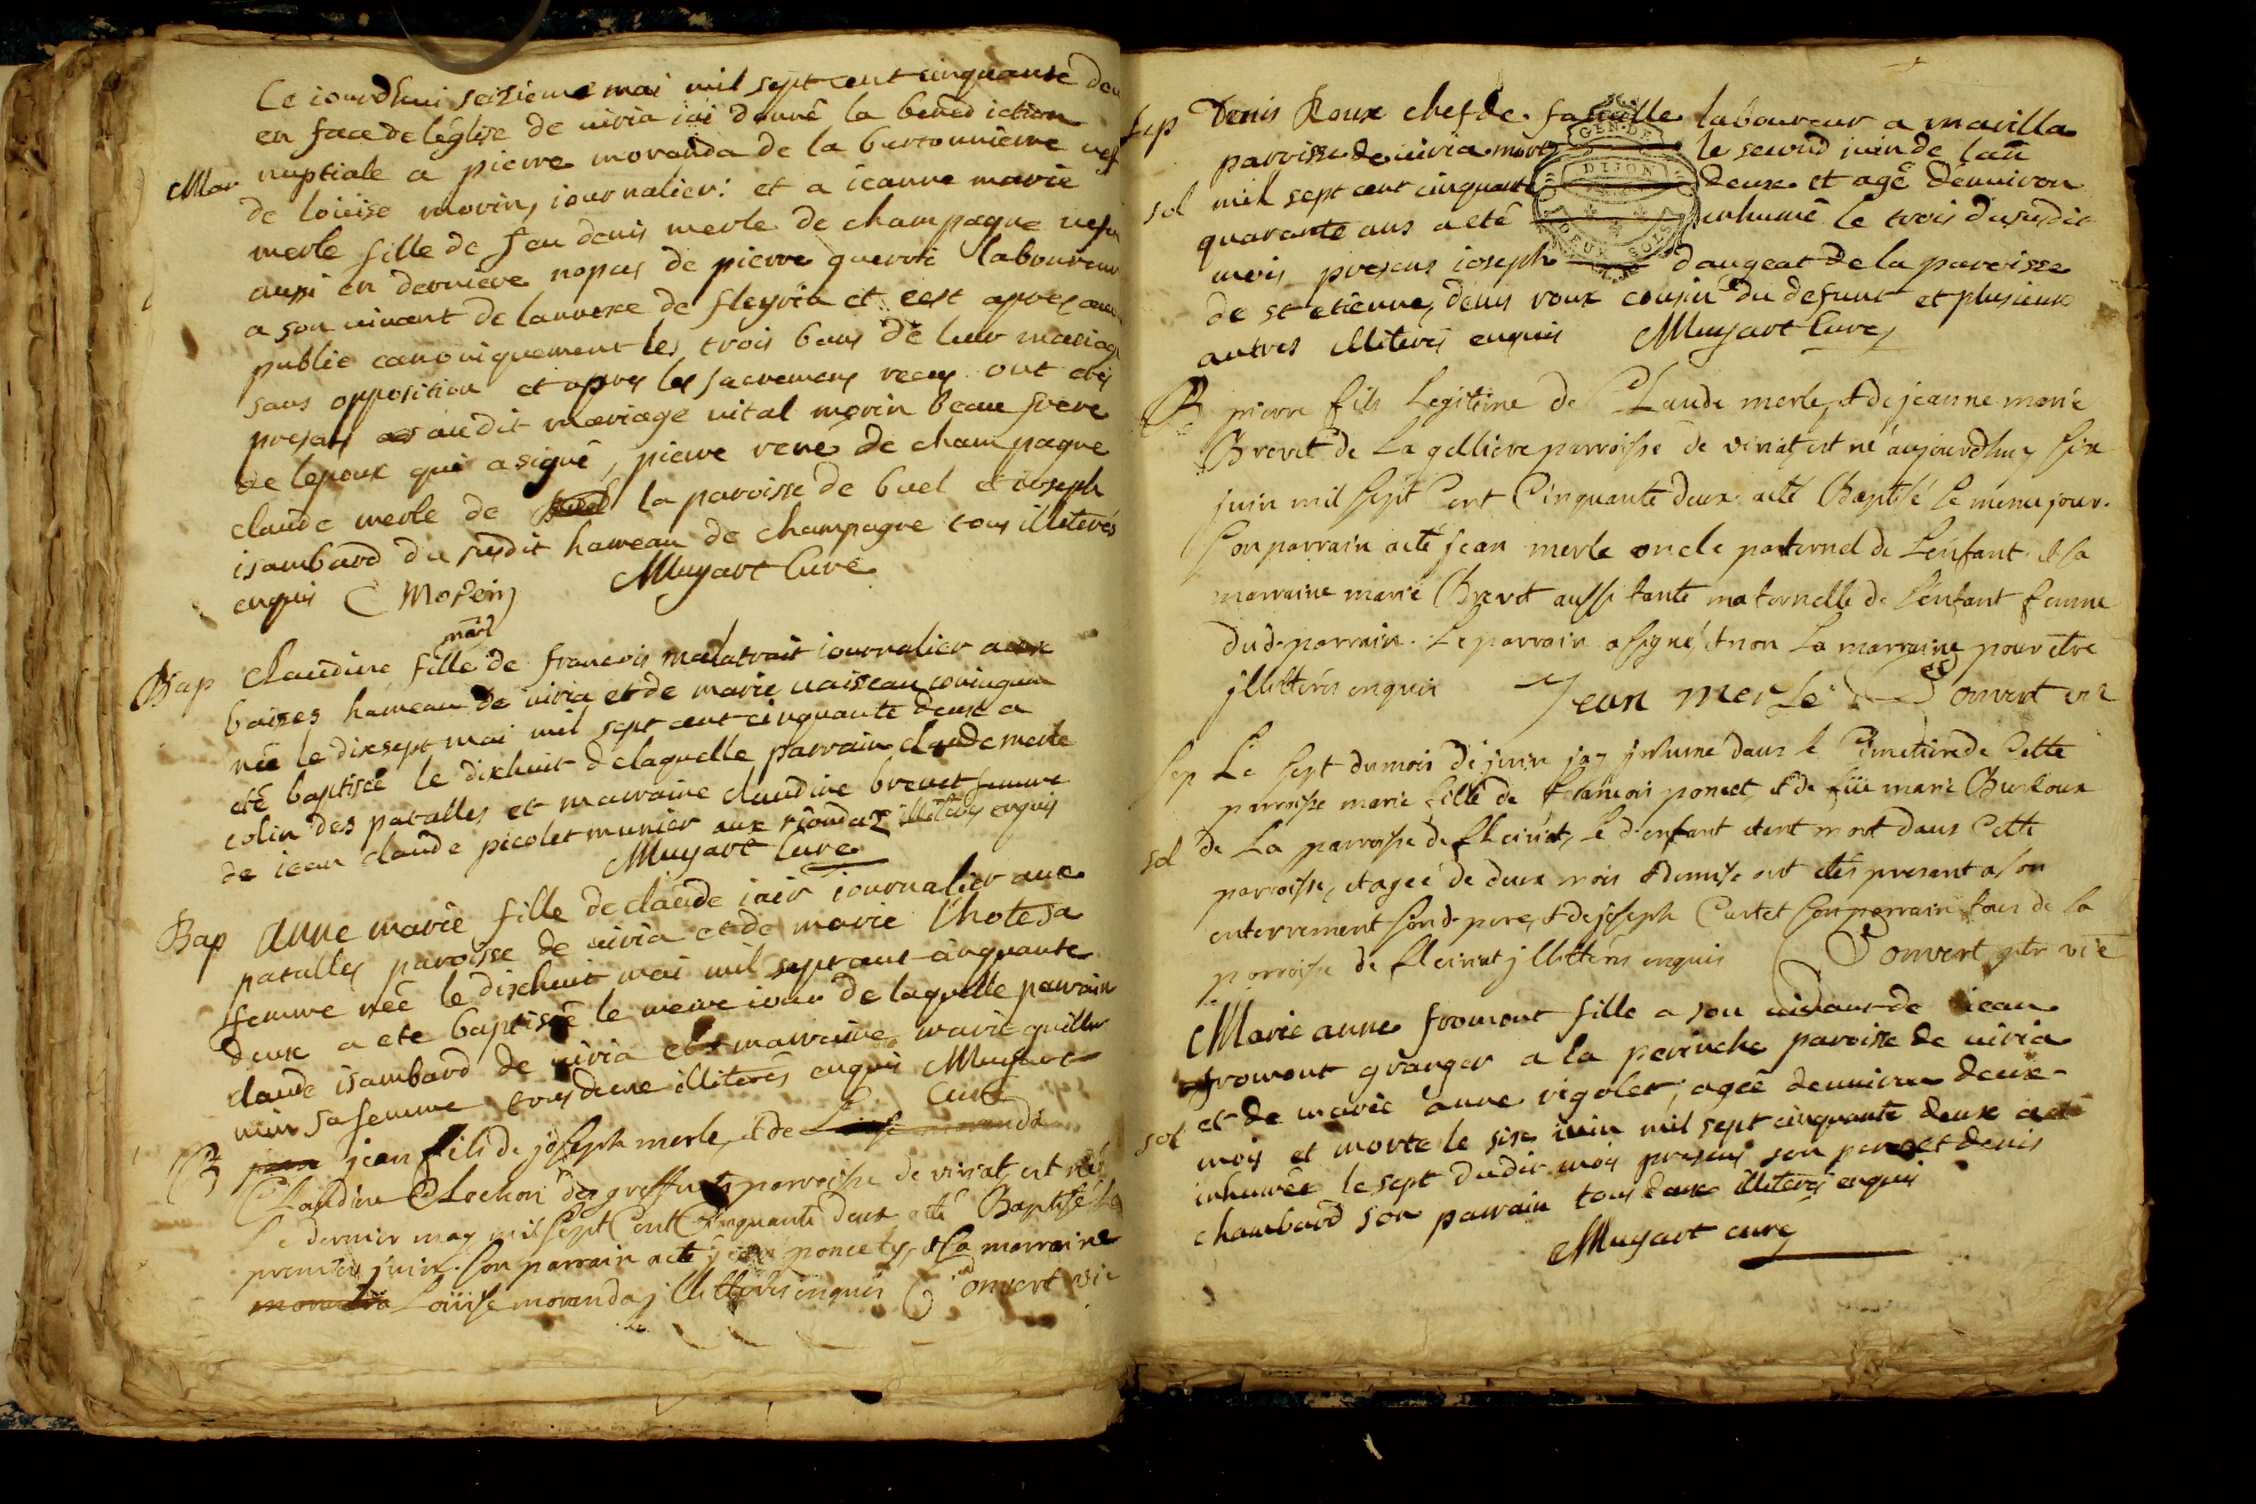 Ce iourdhui seizieme mai mil sept cent cinquante deu
en face de léglise de viria iai donné la benediction
Mar nuptiale a pierre moranda de la bertonniere vef
de loüise morin, iournalier: et a ieanne marie
merle fille de feu denis merle de champagne vefve
aussi en derniere nopces de pierre querrè laboureur
a son vivant de lannexe de fleyria et cest apres avoir
publié canoniquement les trois bans de leur mariage
sans opposition et apres les sacremens receus ont étés
presens audit mariage vital morin beau frere
de lepoux qui a signé, pierre rené de champagne
claude merle de la paroisse de buel et ioseph
isambard du susdit hameau de champagne tous illiterés
enquis Morein Muyart Curé
mad
Bap Claudine fille de francois malatrait iournalier aux
baises hameau de viria et de marie vaiseau coniugum
née le dixsept mai mil sept cent cinquante deux a
eté baptisée le dixhuit de laquelle parrain claude merle
colin des patalles et marraine claudine brevet femme
de iean claude picolet munier aux rioudaz illiterés enquis
Muyart Curé
Bap Anne marie fille de claude iair iournalier aux
patalles paroisse de viria et de marie Chotesa
femme née le dixhuit mai mil sept cent cinquante
deux a eté baptisée le meme iour de laquelle parrain
claude isambard de viria et marraine marie guille
min sa femme tous deux illiterés enquis Muyart
Curé
B jean fils de joseph merle, & de
Claudine Clochon des greffets parroisse de viriat, est né
le dernier may mil sept Cent Cinquante deux a été Baptisé le
premier juin. son parrain a eté jean poncety, & sa marraine
Loüise moranda jllitterés enquis Convert vic
Sep Denis Roux chef de famille laboureur a marilla
paroisse de viria mort le second iuin de lan
sol mil sept cent cinquante deux et agé denviron
quarante ans a eté inhumé le trois du susdit
mois presens ioseph dangeat de la paroisse
de st etienne, denis roux cousin du defunt et plusieurs
autres illiterés enquis Muyart Curé
GEN. DE DIJON
DEUX SOLS
B pierre fils Legitime de Claude merle, & de jeanne marie
Brevet de La gelliere parroisse de viriat, est né aujourdhuy six
juin mil sept Cent Cinquante deux a eté Baptisé le meme jour.
son parrain a eté jean merle oncle paternel de L'enfant & sa
marraine marie Brevet aussi tante maternelle de L'enfant femme
dud. parrain. Le parrain a signé, & non La marraine pour être
jllitterés enquis Jean merle Convert vic
Sep Le sept du mois de juin jay jnhumé dans le Cimetiere de Cette
parroisse marie fille de francois poncet, & de füe marie Burloux
sol de La parroisse de fleiriat, le d. enfant etant mort dans Cette
parroisse, & agée de deux mois & demi se ont étés present a son
enterrement son d. pere, & de joseph Curtet son parrain tous de la
parroisse de fleiriat jllitterés enquis Convert ptr vic
Marie anne fromont fille a son vivant de iean
fromont granger a la perinche paroisse de viria
et de marie anne rigolet, agée denviron deux
sol mois et morte le six iuin mil sept cinquante deux a eté
inhumée le sept dudit mois presens son pere et denis
chambard son parrain tous deux illiterés enquis
Muyart curé